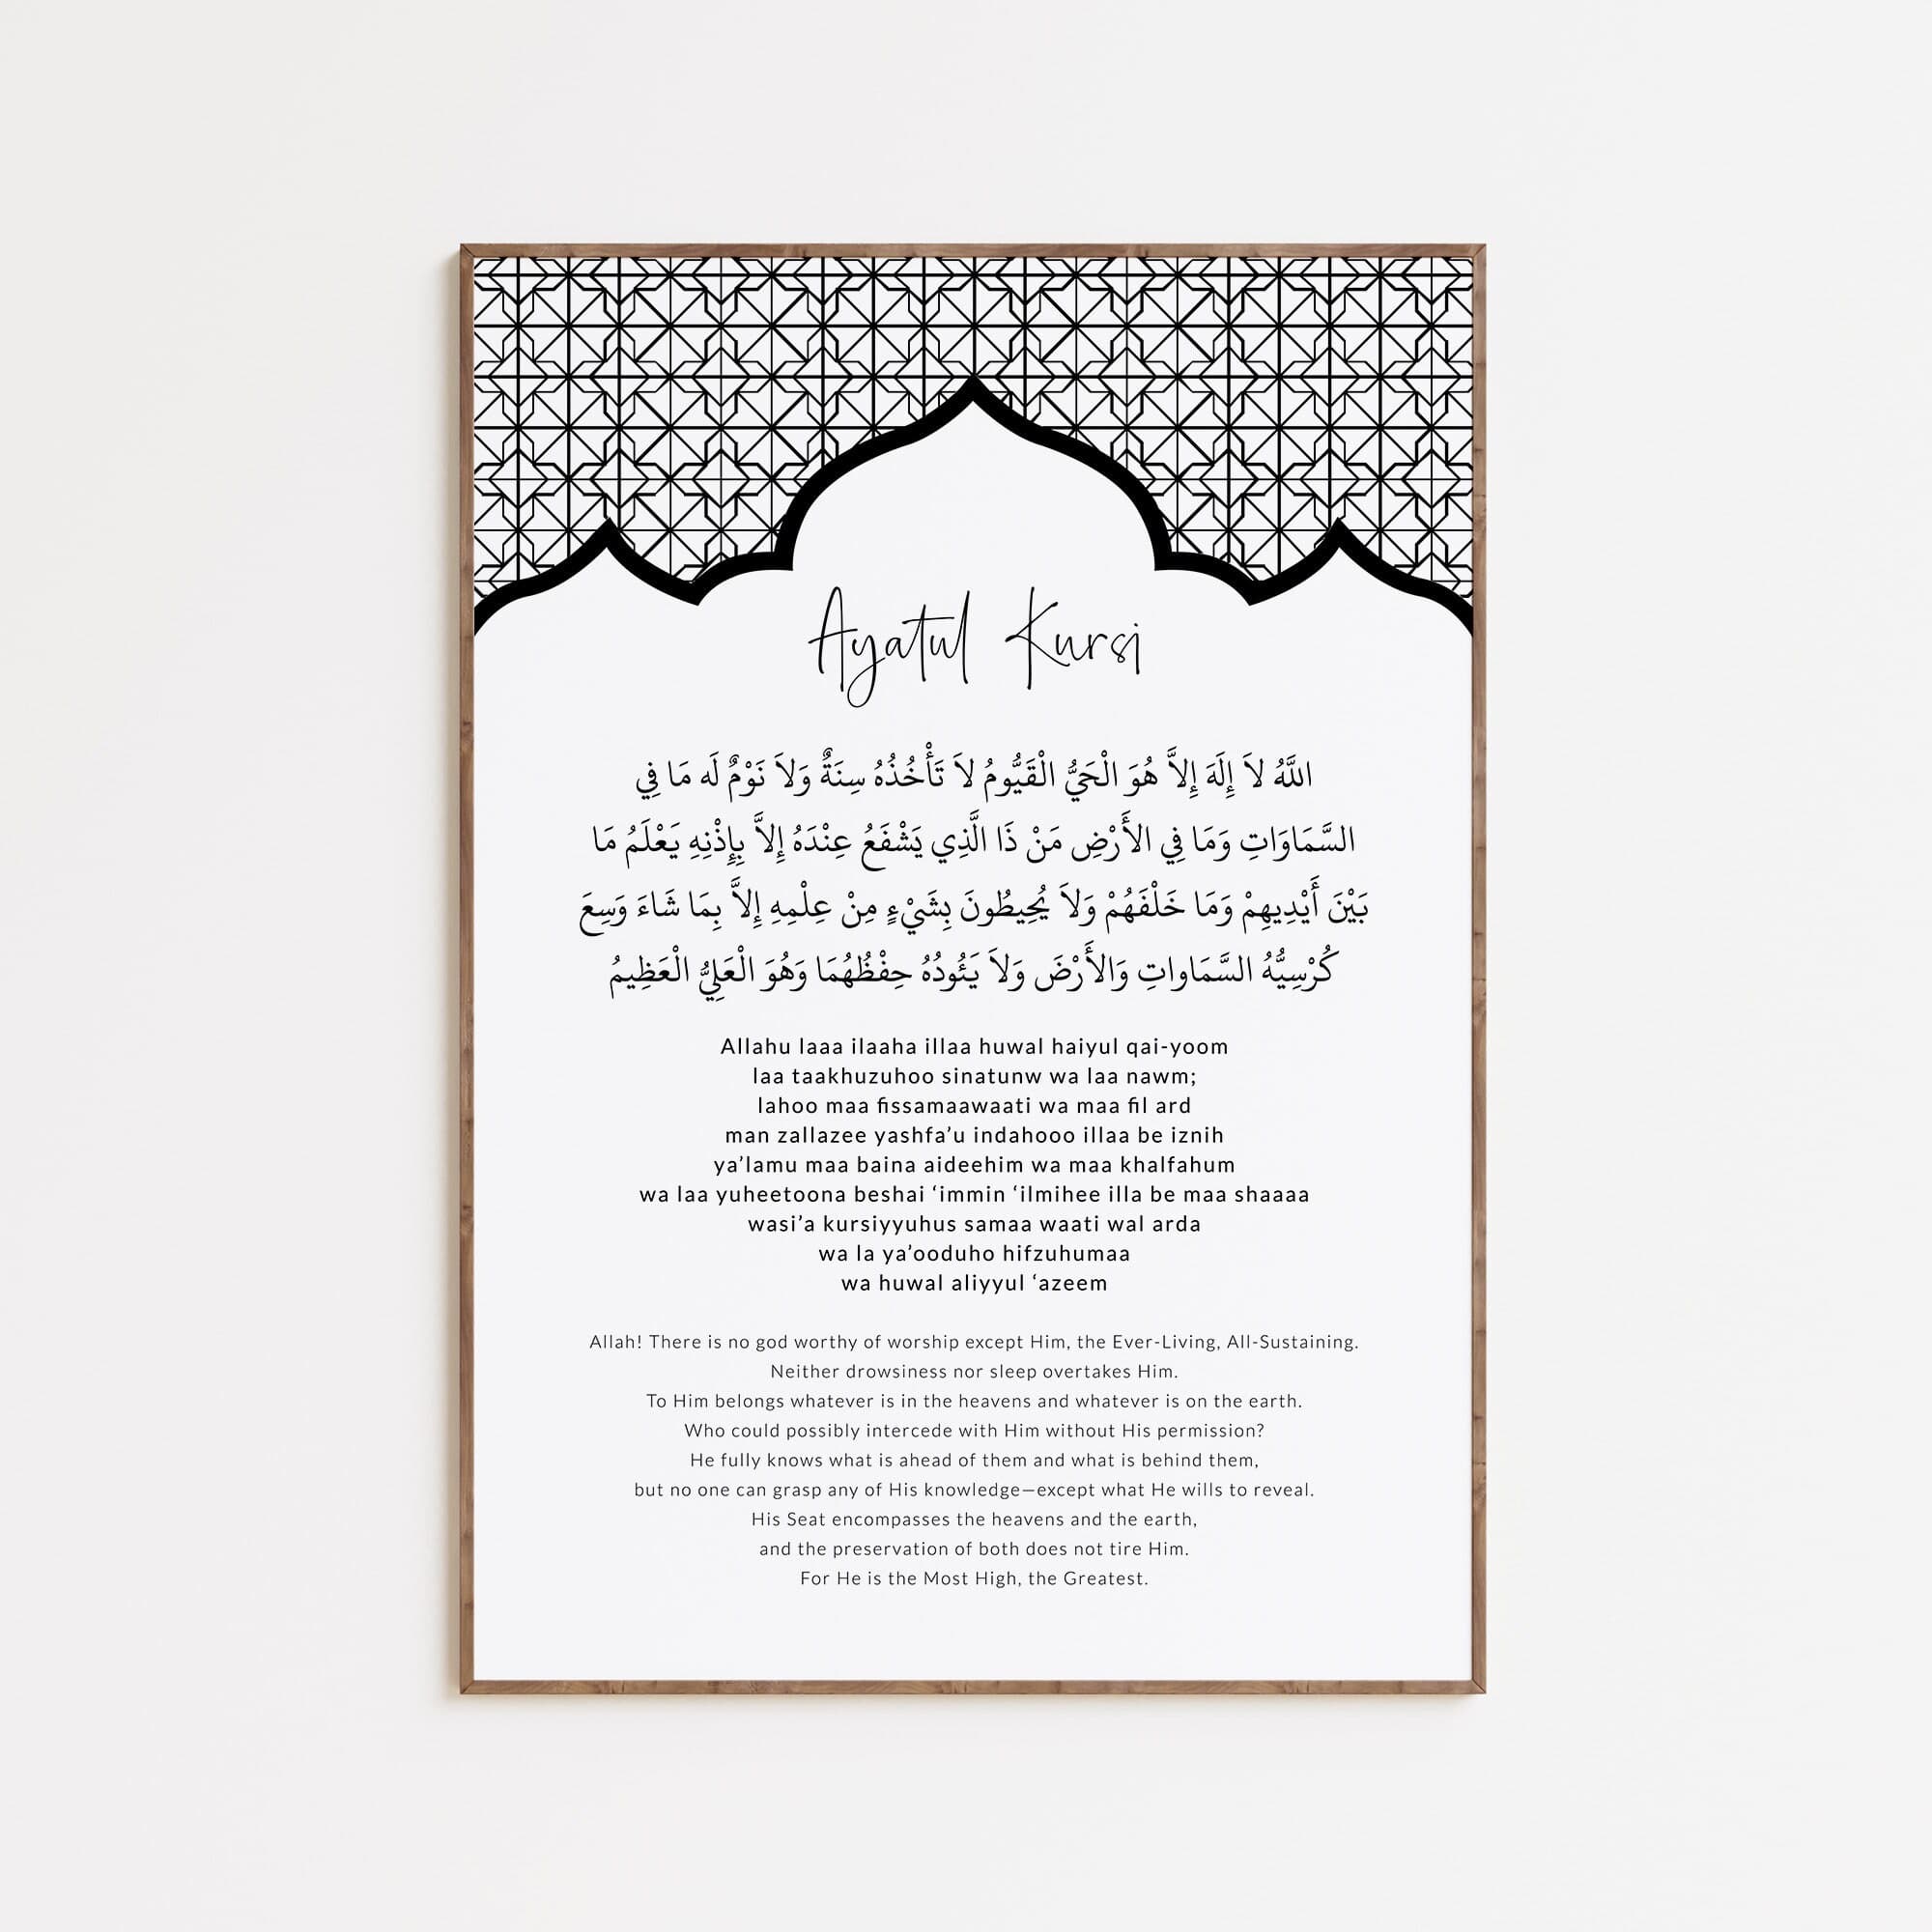 Ayatul Kursi
اللَّهُ لاَ إِلَهَ إِلاَّ هُوَ الْحَيُّ الْقَيُّومُ لاَ تَأْخُذُهُ سِنَةٌ وَلاَ نَوْمٌ لَه مَا فِي
السَّمَاوَاتِ وَمَا فِي الأَرْضِ مَنْ ذَا الَّذِي يَشْفَعُ عِنْدَهُ إِلاَّ بِإِذْنِهِ يَعْلَمُ مَا
بَيْنَ أَيْدِيهِمْ وَمَا خَلْفَهُمْ وَلاَ يُحِيطُونَ بِشَيْءٍ مِنْ عِلْمِهِ إِلاَّ بِمَا شَاءَ وَسِعَ
كُرْسِيُّهُ السَّمَاواتِ وَالأَرْضَ وَلاَ يَئُودُهُ حِفْظُهُمَا وَهُوَ الْعَلِيُّ الْعَظِيمُ
Allahu laaa ilaaha illaa huwal haiyul qai-yoom
laa taakhuzuhoo sinatunw wa laa nawm;
lahoo maa fissamaawaati wa maa fil ard
man zallazee yashfa’u indahooo illaa be iznih
ya’lamu maa baina aideehim wa maa khalfahum
wa laa yuheetoona beshai ‘immin ‘ilmihee illa be maa shaaaa
wasi’a kursiyyuhus samaa waati wal arda
wa la ya’ooduho hifzuhumaa
wa huwal aliyyul ‘azeem
Allah! There is no god worthy of worship except Him, the Ever-Living, All-Sustaining.
Neither drowsiness nor sleep overtakes Him.
To Him belongs whatever is in the heavens and whatever is on the earth.
Who could possibly intercede with Him without His permission?
He fully knows what is ahead of them and what is behind them,
but no one can grasp any of His knowledge—except what He wills to reveal.
His Seat encompasses the heavens and the earth,
and the preservation of both does not tire Him.
For He is the Most High, the Greatest.